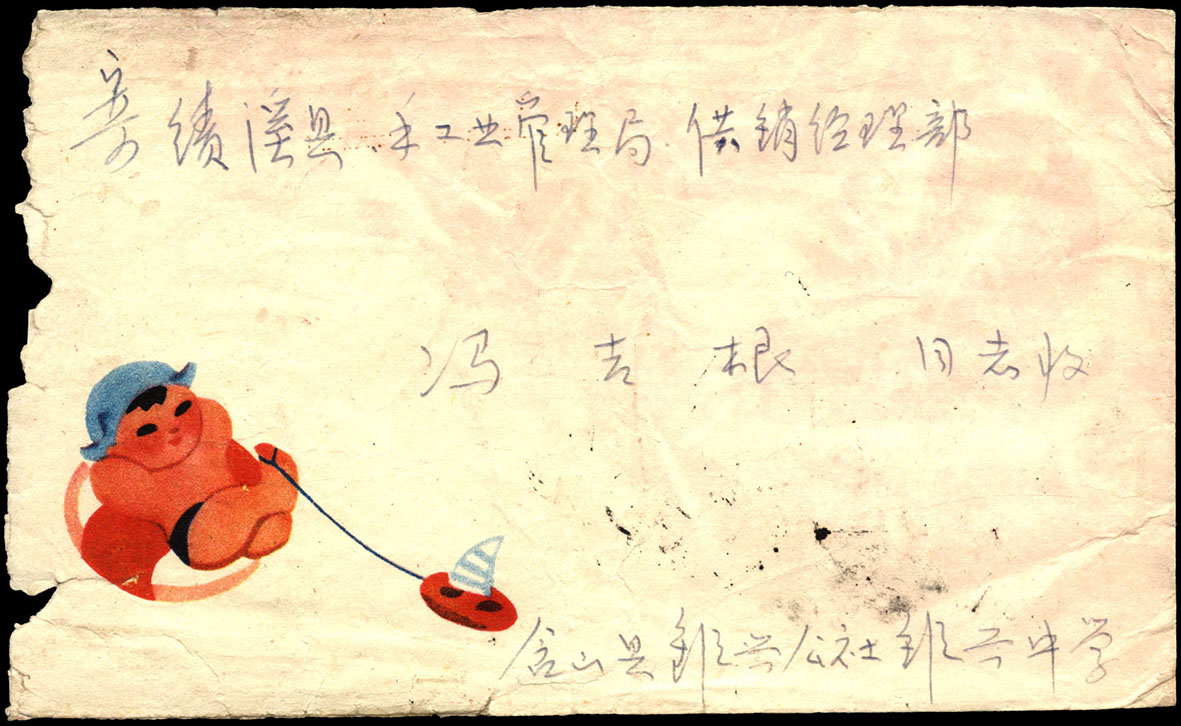 寄 绩溪县 手工业管理局 供销经理部
冯 吉 根 同志收
含山县 兴公社 兴中学